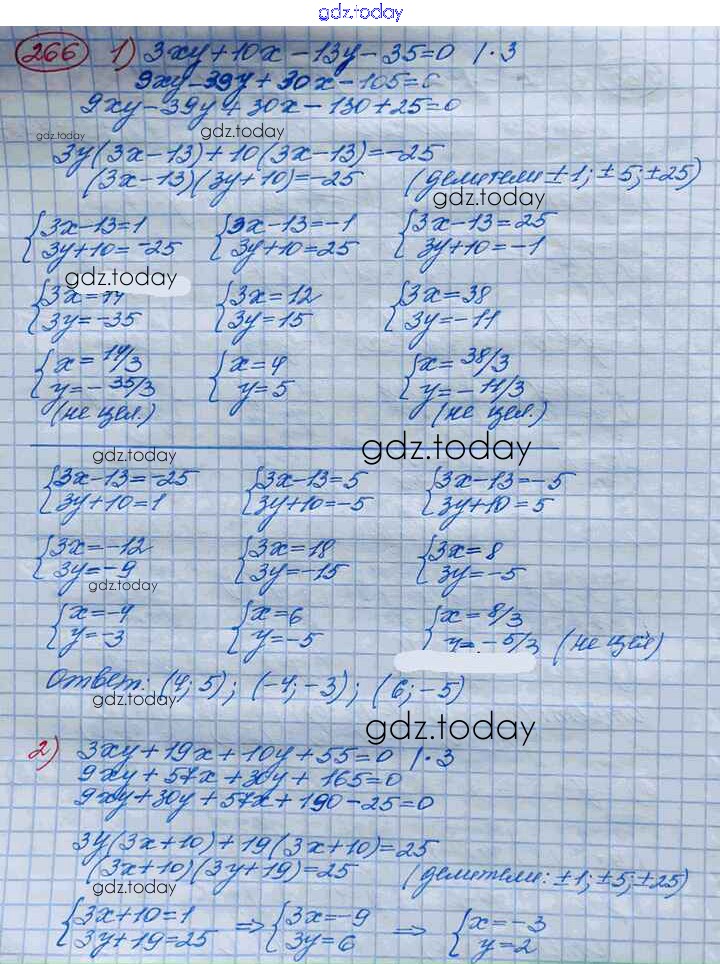 gdz.today
266 1) 3xy+10x-13y-35=0 |·3
9xy-39y+30x-105=0
9xy-39y+30x-130+25=0
gdz.today gdz.today
3y(3x-13)+10(3x-13)=-25
(3x-13)(3y+10)=-25 (делители ±1; ±5; ±25)
gdz.today
{3x-13=1 {3x-13=-1 {3x-13=25
3y+10=-25 3y+10=25 3y+10=-1
gdz.today
{3x=14 {3x=12 {3x=38
3y=-35 3y=15 3y=-11
{x=14/3 {x=4 {x=38/3
y=-35/3 y=5 y=-11/3
(не цел.) (не цел.)
gdz.today gdz.today
{3x-13=-25 {3x-13=5 {3x-13=-5
3y+10=1 3y+10=-5 3y+10=5
{3x=-12 {3x=18 {3x=8
3y=-9 3y=-15 3y=-5
gdz.today
{x=-4 {x=6 {x=8/3
y=-3 y=-5 y=-5/3 (не цел)
Ответ: (4; 5); (-4; -3); (6; -5)
gdz.today gdz.today
2) 3xy+19x+10y+55=0 |·3
9xy+57x+30y+165=0
9xy+30y+57x+190-25=0
3y(3x+10)+19(3x+10)=25
(3x+10)(3y+19)=25 (делители: ±1; ±5; ±25)
gdz.today
{3x+10=1 ⇒ {3x=-9 ⇒ {x=-3
3y+19=25 3y=6 y=2